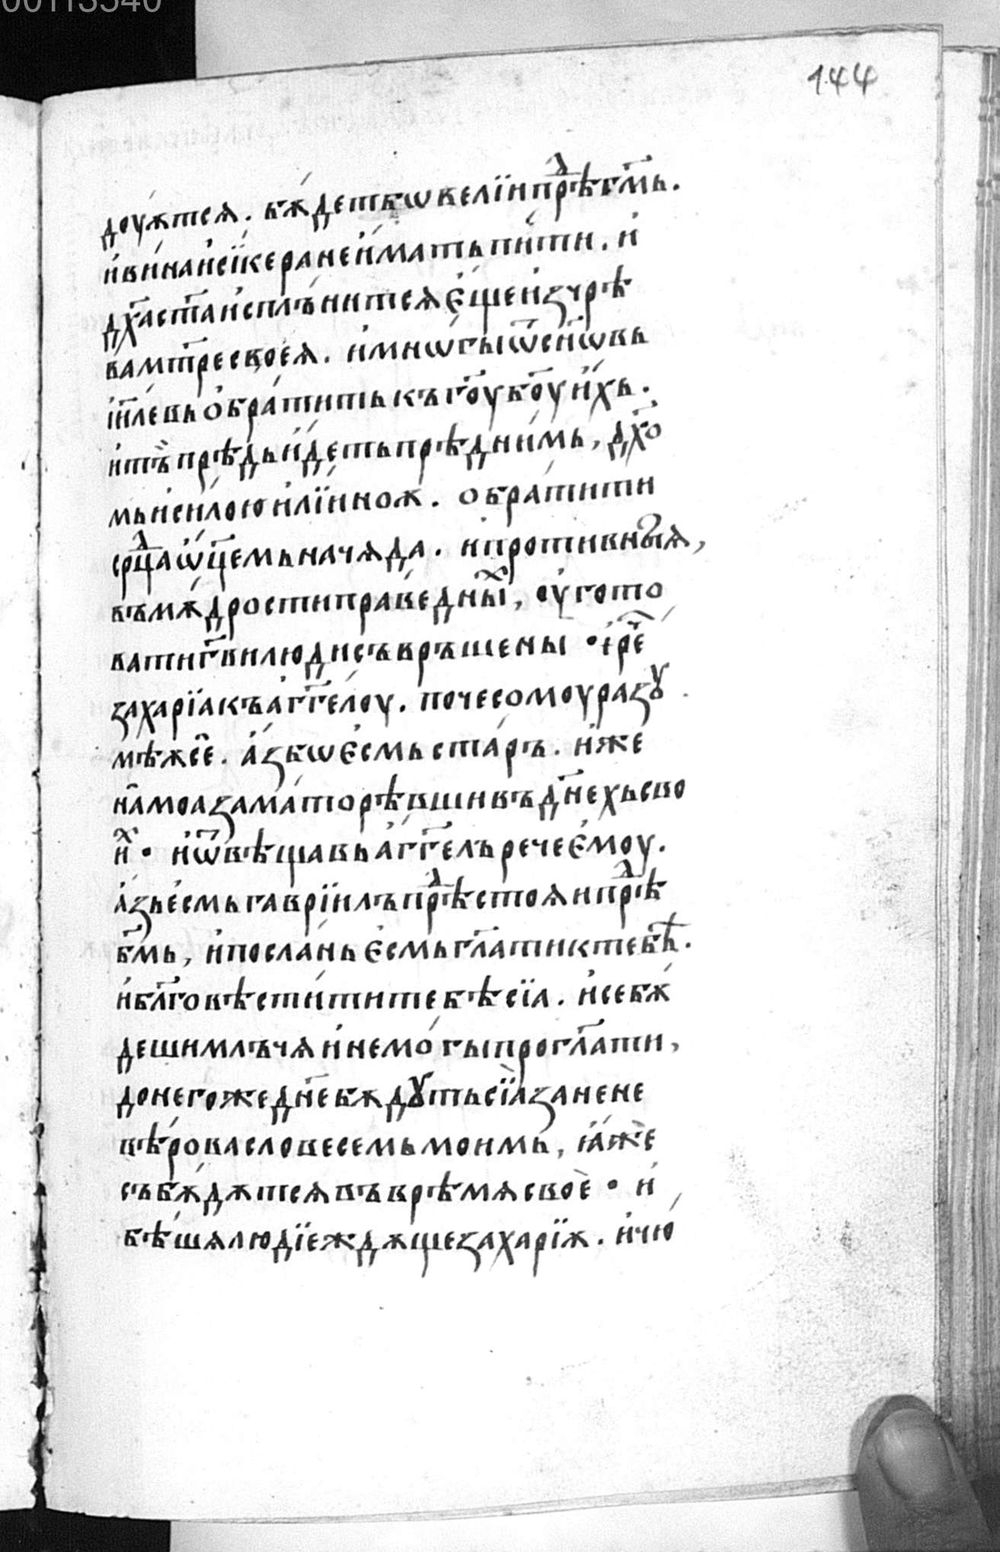 00113540
144
доуѫтсѧ. бѫдетбѡвелїипрⷣѣбг҃мь.
ивинаисїкеранеиматьпити. и
дх҃астг҃аисплънитсѧещеизчрѣ
вамт҃ресвоеѧ. имнѡгыѿсн҃ѡвь
їил҃евьобратитькъгоу҃боу҃ихь.
итъпрѣдьидетьпрѣднимь, дх҃о
мьисилоюилїиноѫ. обратити
срⷣцаѡц҃емьначѧда. ипротивныѧ,
въмѫдростиправеднⷯыи, оугото
ватигв҃илюдисъвръшены • ирⷱ҃е
захарїакъаггелоу. почесомоуразꙋ
мѣѫсе. азбѡесмьстаръ. иже
намоазаматорѣвшивъдн҃ехьсво
иⷯ • иѿвѣщавьаггелъречеемоу.
азьесмьгаврїилъпрⷣѣстоѧипрⷣѣ
бг҃мь, ипосланьесмьгл҃атиктебѣ.
ибл҃говѣститититебѣсїа. исебѫ
дешимлъчѧинемогыпрогл҃ати,
донегожедн҃ебѫдꙋтьсїазанене
вѣровасловесемьмоимь, ꙗже
събѫдѫтсѧвъврѣмѧсвое • и
бѣшѧлюдїежⷣѫщезахарїѫ. ичю